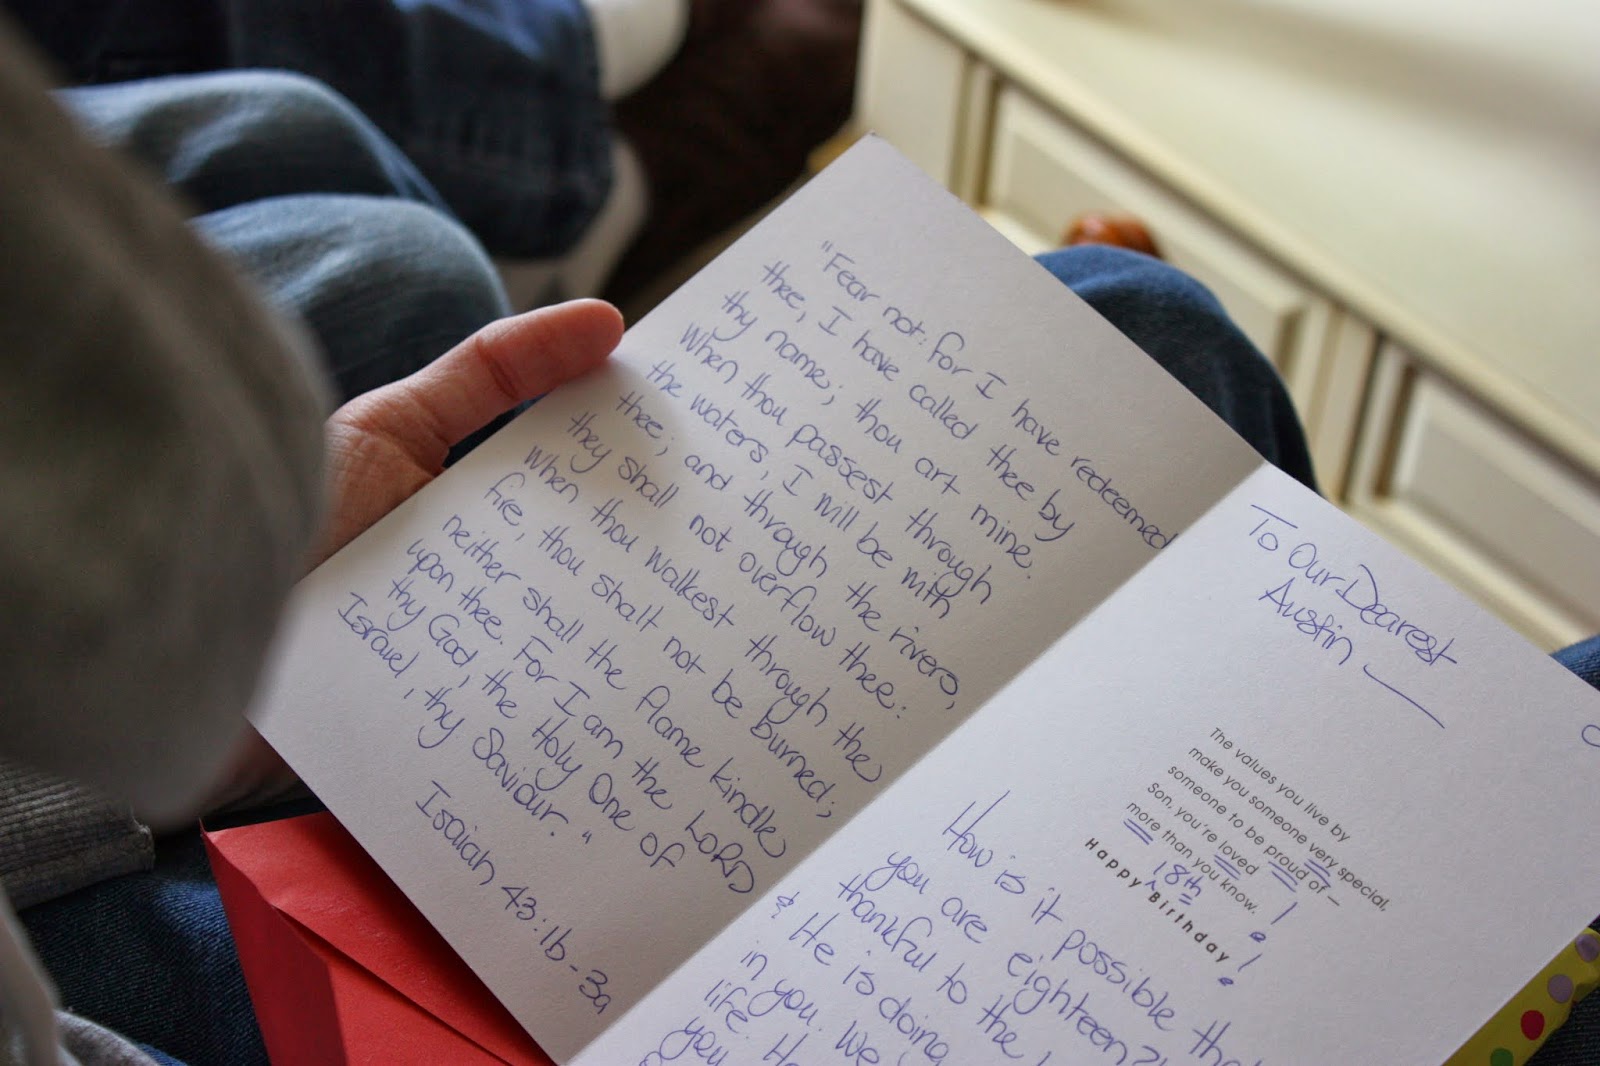 "Fear not: for I have redeemed
thee, I have called thee by
thy name; thou art mine.
When thou passest through
the waters, I will be with
thee; and through the rivers,
they shall not overflow thee:
when thou walkest through the
fire, thou shalt not be burned;
neither shall the flame kindle
upon thee. For I am the LORD
thy God, the Holy One of
Israel, thy Saviour."
Isaiah 43:1b-3a
To Our Dearest
Austin —
The values you live by
make you someone very special,
someone to be proud of –
Son, you're loved
more than you know.
18th
Happy Birthday!
How is it possible
you are eighteen?!
thankful to the
& He is doing
in you. We
life
you.